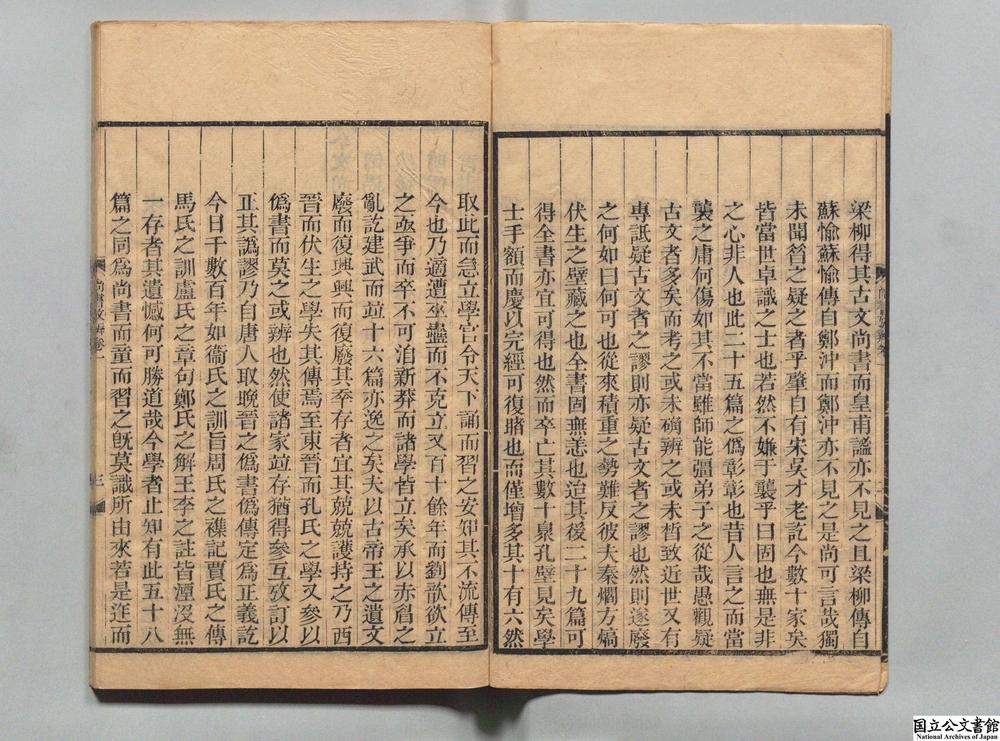 梁柳得其古文尚書而皇甫謐亦不見之且梁柳傳自
蘇愉蘇愉傳自鄭沖而鄭沖亦不見之是尚可言哉獨
未聞晉之疑之者乎肇自有宋吳才老訖今數十家矣
皆當世卓識之士也若然不嫌于襲乎曰固也無是非
之心非人也此二十五篇之僞彰彰也昔人言之而當
襲之庸何傷如其不當雖師能彊弟子之從哉愚觀疑
古文者多矣而考之或未礭辨之或未晳致近世又有
專詆疑古文者之謬則亦疑古文者之謬也然則遂廢
之何如曰何可也從來積重之勢難反彼夫秦爓方熇
伏生之壁藏之也全書固無恙也迨其後二十九篇可
得全書亦宜可得也然而卒亡其數十泉孔壁見矣學
士手額而慶以完經可復睹也而僅增多其十有六然
取此而急立學官令天下誦而習之安知其不流傳至
今也乃適遭巫蠱而不克立又百十餘年而劉歆欲立
之亟爭而卒不可洎新莽而諸學皆立矣承以赤眉之
亂訖建武而竝十六篇亦逸之矣夫以古帝王之遺文
廢而復興興而復廢其幸存者宜其兢兢護持之乃西
晉而伏生之學失其傳焉至東晉而孔氏之學又參以
僞書而莫之或辨也然使諸家竝存猶得參互攷訂以
正其譌謬乃自唐人取晚晉之僞書僞傳定爲正義訖
今日千數百年如衞氏之訓旨周氏之襍記賈氏之傳
馬氏之訓盧氏之章句鄭氏之解王李之註皆潭沒無
一存者其遺憾何可勝道哉今學者止知有此五十八
篇之同爲尚書而童而習之旣莫識所由來若是迬而
尚書攷辨卷一
三
国立公文書館
National Archives of Japan